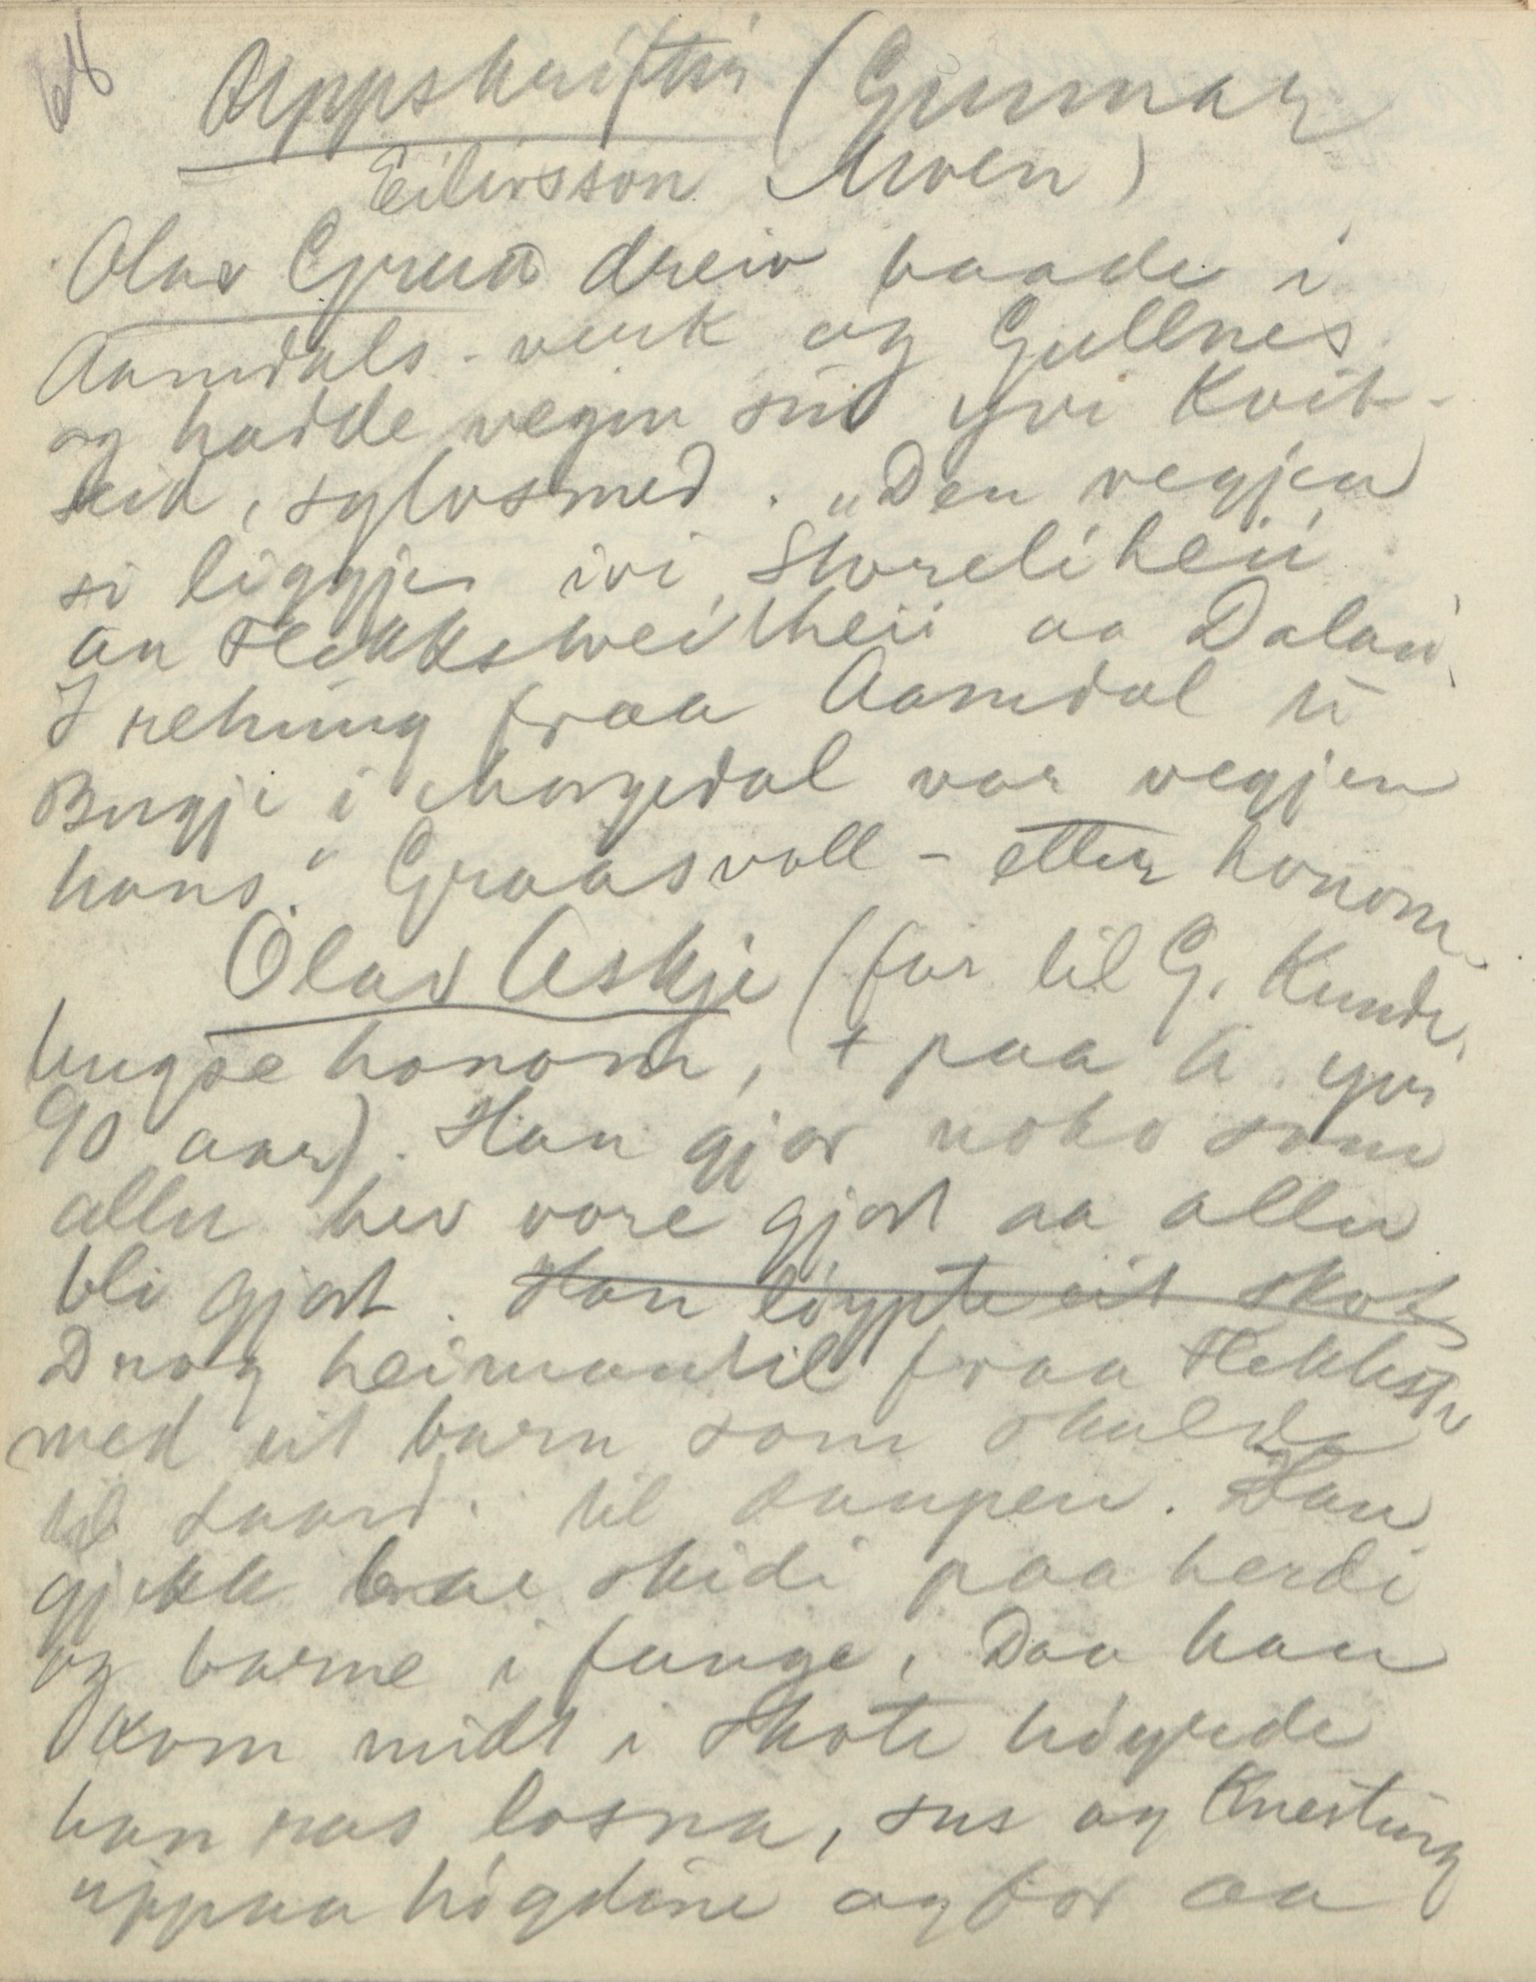 64
Uppskrifter (Gunnar
Eilivsson Kroen)
Olav Grua dreiv baade i
Aamdals-verk og Gullnes
og hadde vegen sin yvi Kvit-
seid, sylvsmed. "Den vegjen
si liggje ivi Storeliheii
an Flekkstveitheii aa Dalan
I retning fraa Aamdal ti
Bugje i Morgedal var vegjen
hans." Graasvoll - etter honom.
Olav Askje (far til G. Kunde
hugse honom, + paa Å. yvi
90 aar). Han gjor noko som
aller hev vore gjort aa aller
bli gjort. Han løypte eit skot
Drog heimantil fraa
med eit barn som skulde
til daupen. Han
gjekk bae skidi paa herdi
og barne i fange. Daa han
kom midt i skote høyrde
han ras losna, sus og knesting
uppaa høgdine og for aa